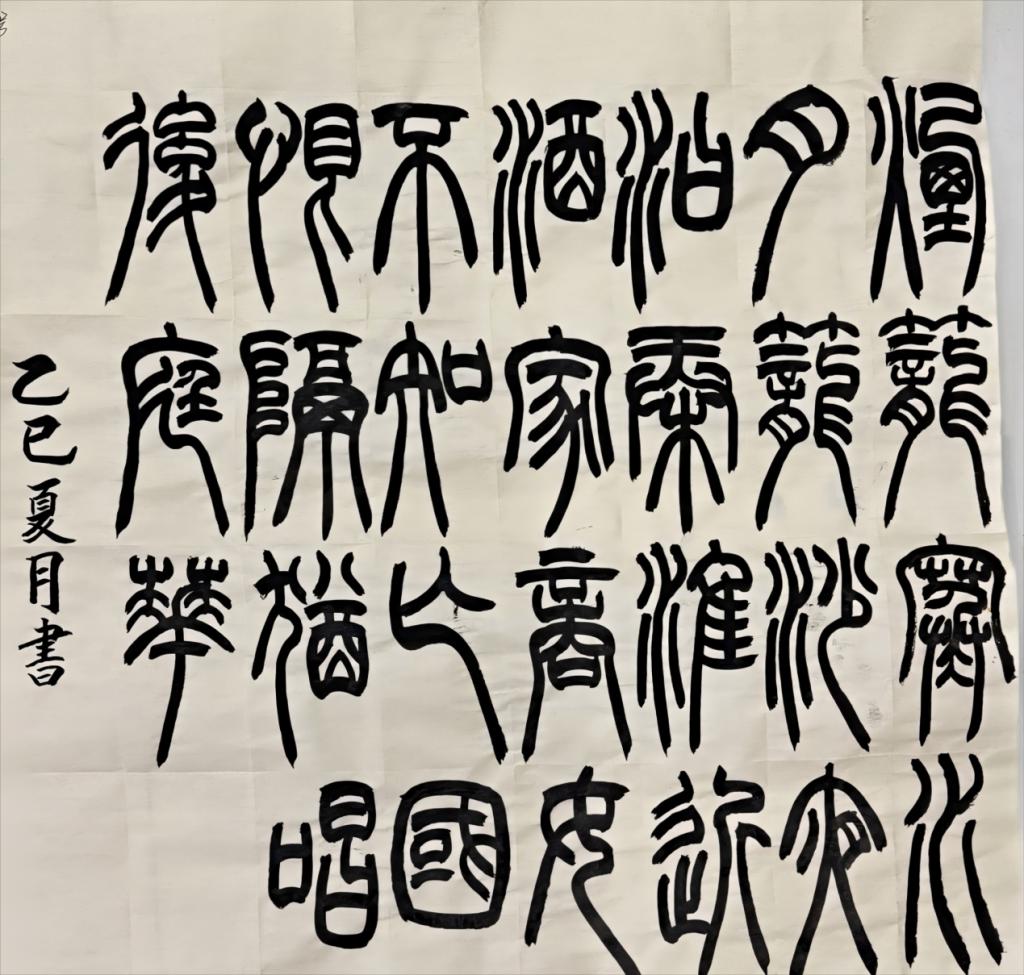 煙籠寒水
月籠沙夜
泊秦淮近
酒家商女
不知亡國
恨隔猶唱
後庭華
乙巳夏月書